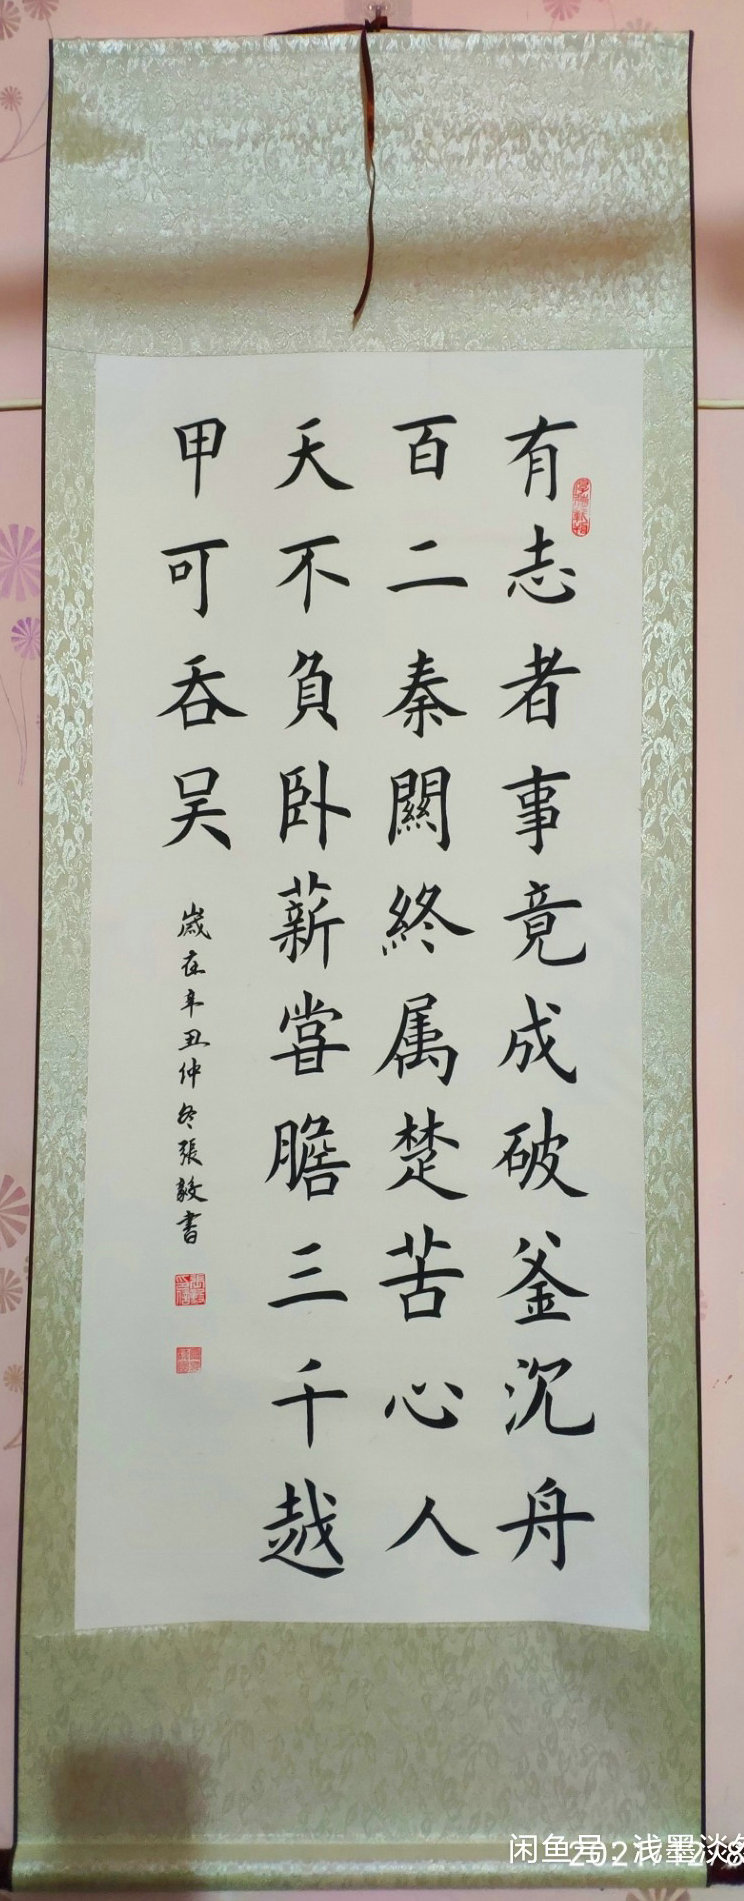 有志者事竟成破釜沉舟
百二秦關終属楚苦心人
天不負卧薪嘗膽三千越
甲可吞吴
歲在辛丑仲冬張毅書
闲鱼号：浅墨淡